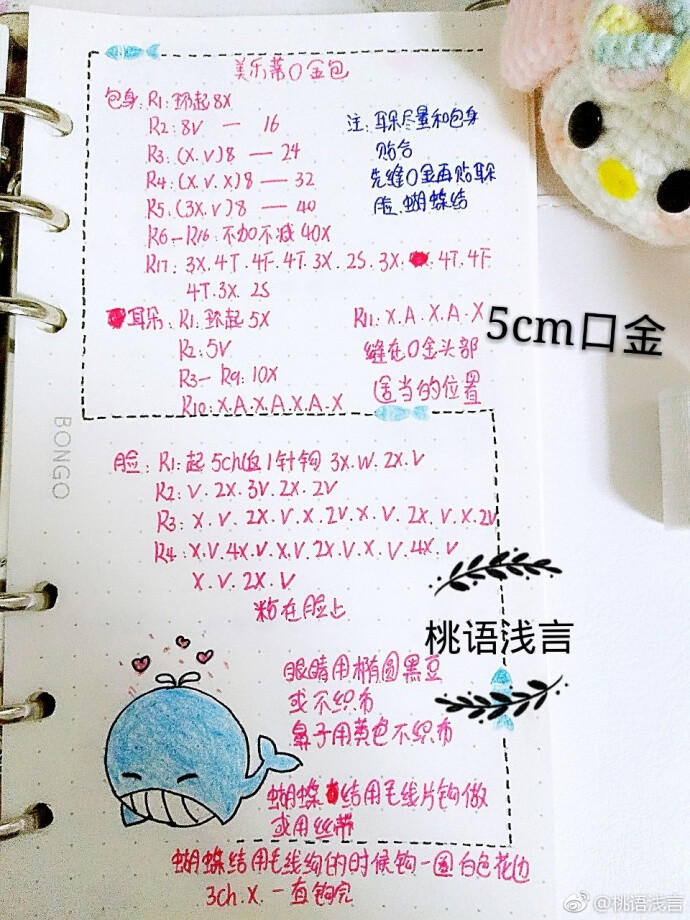 美乐蒂口金包
包身: R1: 环起8X
R2: 8V — 16
R3: (X.V)8 — 24
R4: (X.V.X)8 — 32
R5: (3X.V)8 — 40
R6-R16: 不加不减40X
R17: 3X.4T.4F.4T.3X.2S.3X.4T.4F
4T.3X.2S
注: 耳朵尽量和包身
贴合
先缝口金再贴耳朵
脸.蝴蝶结
耳朵: R1: 环起5X
R2: 5V
R3-R9: 10X
R10: X.A.X.A.X.A.X
R11: X.A.X.A.X
缝在口金头部
适当的位置
5cm口金
BONGO
脸: R1: 起5ch值1针钩3X.W.2X.V
R2: V.2X.3V.2X.2V
R3: X.V.2X.V.X.2V.X.V.2X.V.X.2V
R4: X.V.4X.V.X.V.2X.V.X.V.4X.V
X.V.2X.V
粘在脸上
桃语浅言
眼睛用椭圆黑豆
或不织布
鼻子用黄色不织布
蝴蝶结用毛线片钩做
或用丝带
蝴蝶结用毛线钩的时候钩一圈白色花边
3ch.X.一直钩完
@桃语浅言